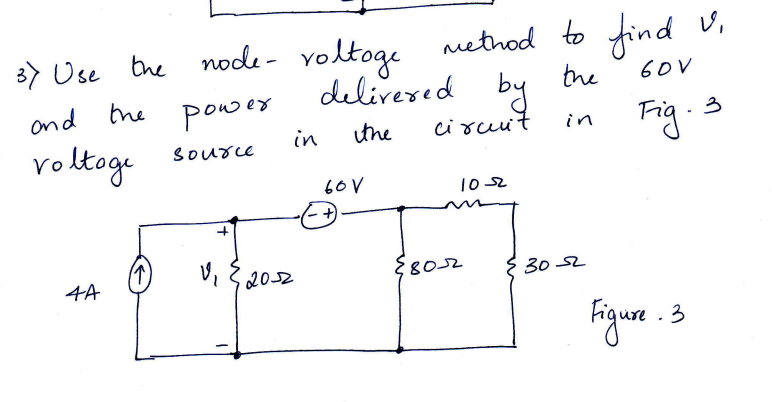 3) Use the node-voltage method to find V₁
and the power delivered by the 60V
voltage source in the circuit in Fig. 3
60V
10Ω
+
- +
4A
V₁
20Ω
80Ω
30Ω
-
Figure. 3